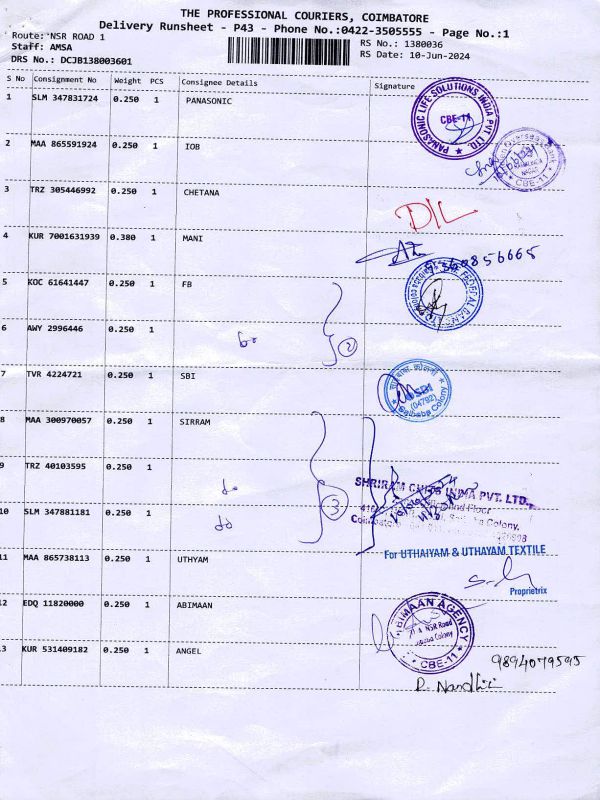 THE PROFESSIONAL COURIERS, COIMBATORE
Delivery Runsheet - P43 - Phone No.:0422-3505555 - Page No.:1
Route: NSR ROAD 1
RS No.: 1380036
Staff: AMSA
RS Date: 10-Jun-2024
DRS No.: DCJB138003601
S No Consignment No Weight PCS Consignee Details Signature
1 SLM 347831724 0.250 1 PANASONIC
PANASONIC LIFE SOLUTIONS INDIA PVT LTD.
CBE-11
2 MAA 865591924 0.250 1 IOB
CBE-11
3 TRZ 305446992 0.250 1 CHETANA
4 KUR 7001631939 0.380 1 MANI
5 KOC 61641447 0.250 1 FB
FEDERAL BANK
6 AWY 2996446 0.250 1
2
7 TVR 4224721 0.250 1 SBI
SBI
(04792)
Saibaba Colony
8 MAA 300970057 0.250 1 SIRRAM
9 TRZ 40103595 0.250 1
do
3
SHRIRAM CHITS INDIA PVT. LTD.,
10 SLM 347881181 0.250 1
dd
Colony,
11 MAA 865738113 0.250 1 UTHYAM
For UTHAIYAM & UTHAYAM TEXTILE
Proprietrix
12 EDQ 11820000 0.250 1 ABIMAAN
ABIMAAN AGENCY
NSR Road
Colony
CBE-11
13 KUR 531409182 0.250 1 ANGEL
9894079595